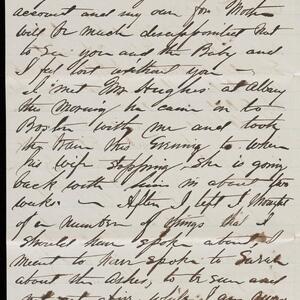 account and my own for Mother
will be much disappointed not
to see you and the Baby and
I feel lost without you –
I met Mr Hughes at Albany
this Morning he came in to
Boston with me and took
the train this Evening to where
his wife stopping. She is going
back with him in about two
weeks – After I left I thought
of a number of things that I
should have spoke about I
meant to have spoke to Sarah
about the Ashes, to be sure and